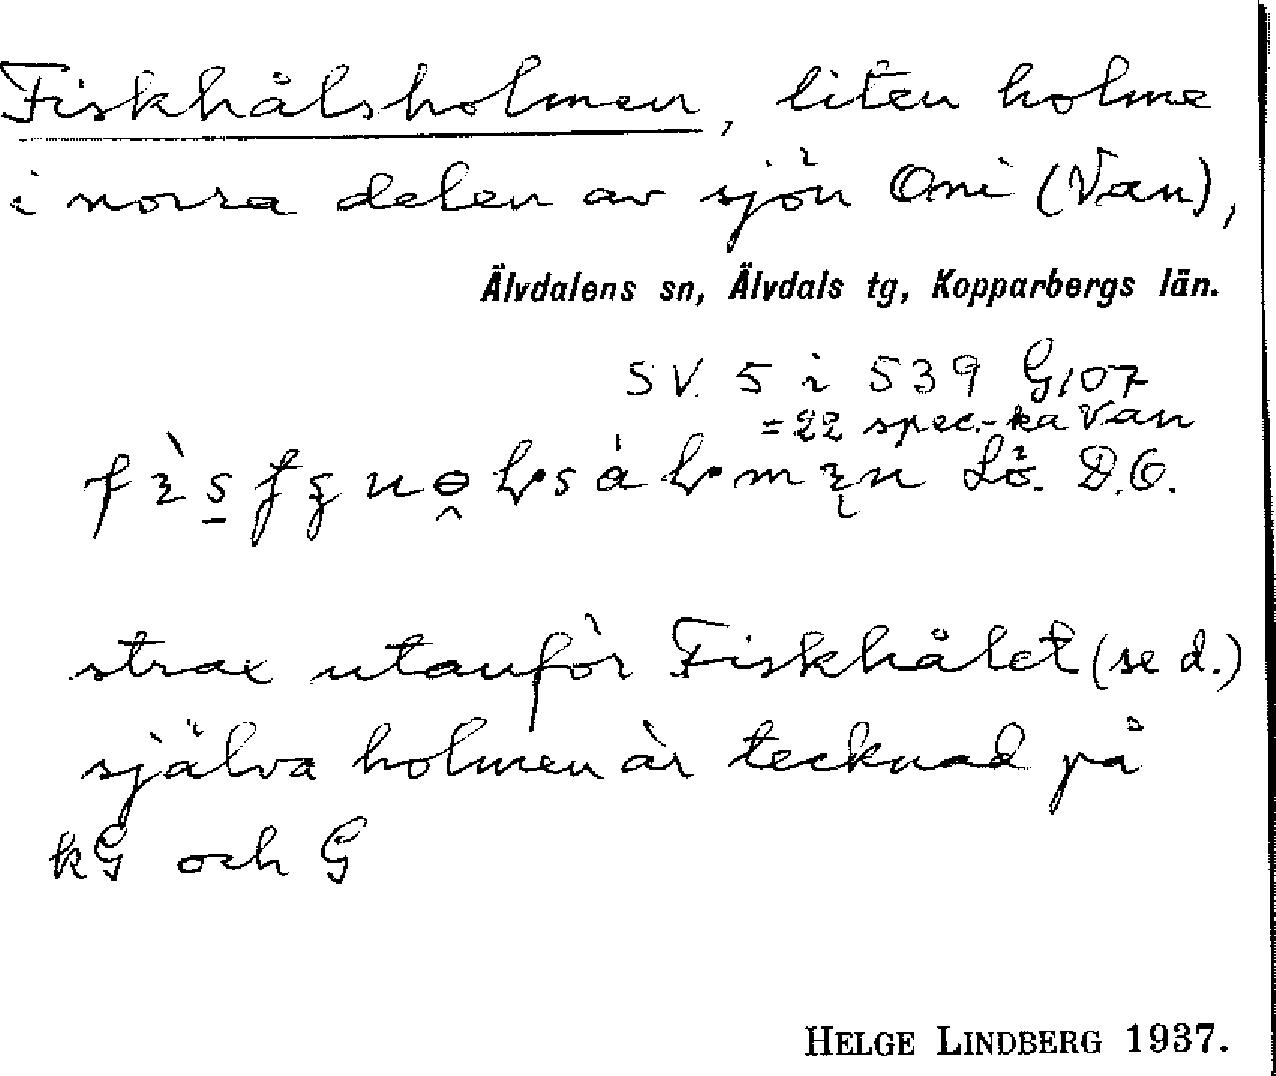 Fiskhålsholmen, liten holme
i norra delen av sjön Omi (Van),
Älvdalens sn, Älvdals tg, Kopparbergs län.
SV. 5 i 539 G107
= 22 spec.-ka Van
Lö. D.O.
strax utanför Fiskhålet (se d.)
själva holmen är tecknad på
kG och G
HELGE LINDBERG 1937.